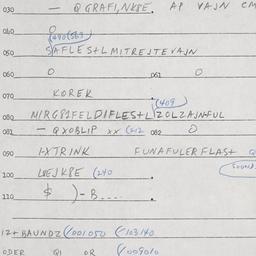 030 — Q GRAFI, NKPE. AP VAJN CM
040 O
(040(563)
050 SAFLES+LMITREJTEVAJN
060 O 061 O
070 KOREK
(409
080 M/RGPIFELDIFLES+LIZOLZAJNFUL
081 — QXOBLIP xx (212 082 O
090 IXTRINK FUNAFULERFLAS+ Q
100 WEJKBE (240
110 $ )-B....
12+BAUNDZ (001050 (103140
ODER QI OR (009010